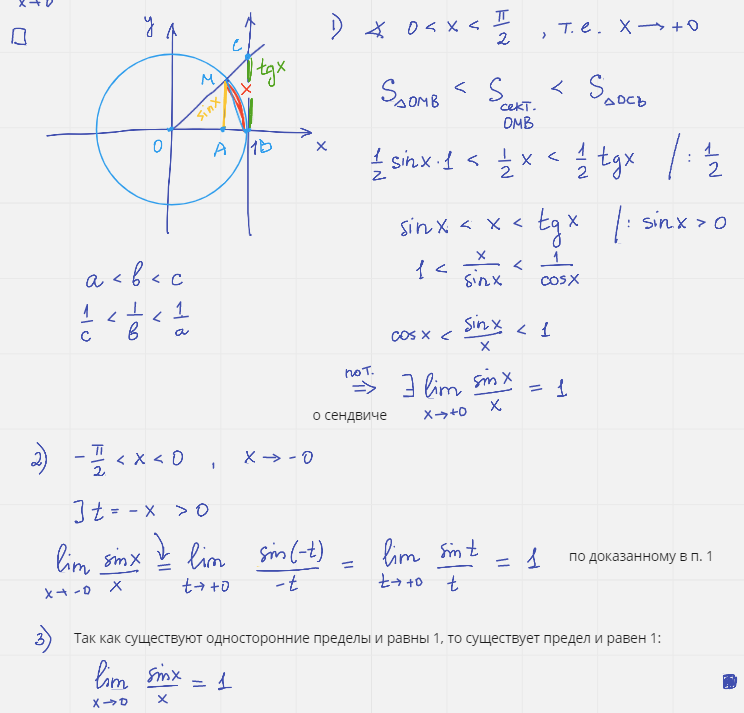 x→0
□
y
C
M
tgx
x
sinx
O
A
1
B
x
1) ∢ 0 < x < π/2 , т.е. x → +0
S△OMB < Sсект. OMB < S△OCB
1/2 sinx·1 < 1/2 x < 1/2 tgx | : 1/2
sinx < x < tgx | : sinx > 0
1 < x/sinx < 1/cosx
a < b < c
1/c < 1/b < 1/a
cosx < sinx/x < 1
по т. ⇒ ∃ lim x→+0 sinx/x = 1
о сендвиче
2) -π/2 < x < 0 , x → -0
] t = -x > 0
lim x→-0 sinx/x = lim t→+0 sin(-t)/-t = lim t→+0 sint/t = 1 по доказанному в п. 1
3) Так как существуют односторонние пределы и равны 1, то существует предел и равен 1:
lim x→0 sinx/x = 1